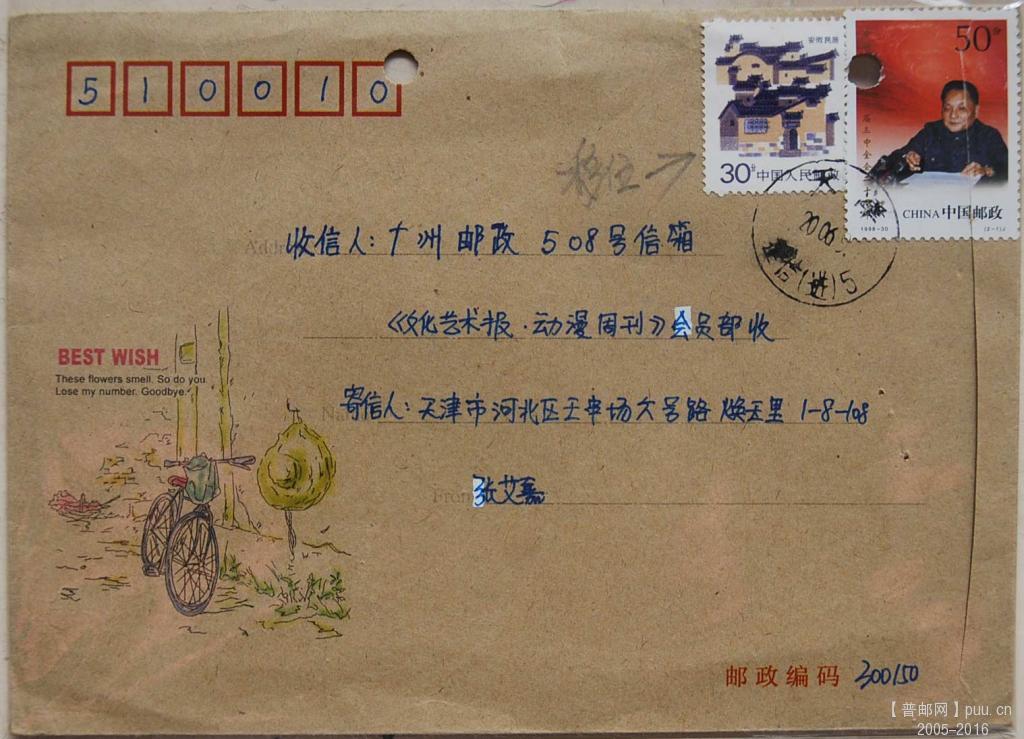 510010
安徽民居
30分中国人民邮政
50分
CHINA 中国邮政
1998-30
(2-1)J
移位→
收信人:广州邮政508号信箱
《文化艺术报·动漫周刊》会员部收
BEST WISH
These flowers smell. So do you.
Lose my number. Goodbye.
寄信人:天津市河北区王串场六号路焕玉里1-8-108
From
张艾嘉
邮政编码 300150
【普邮网】puu.cn
2005-2016